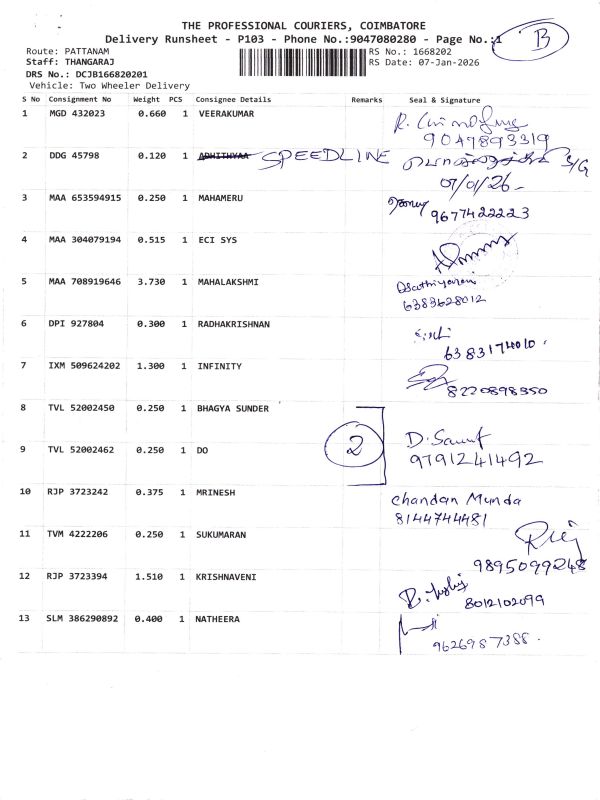 THE PROFESSIONAL COURIERS, COIMBATORE
Delivery Runsheet - P103 - Phone No.:9047080280 - Page No.:1
B
Route: PATTANAM
RS No.: 1668202
Staff: THANGARAJ
RS Date: 07-Jan-2026
DRS No.: DCJB166820201
Vehicle: Two Wheeler Delivery
S No Consignment No Weight PCS Consignee Details Remarks Seal & Signature
1 MGD 432023 0.660 1 VEERAKUMAR
9049893319
2 DDG 45798 0.120 1 ADHITHYAA SPEEDLINE S/G
07/01/26
3 MAA 653594915 0.250 1 MAHAMERU 9677422223
4 MAA 304079194 0.515 1 ECI SYS
5 MAA 708919646 3.730 1 MAHALAKSHMI
6383628012
6 DPI 927804 0.300 1 RADHAKRISHNAN
6383174010.
7 IXM 509624202 1.300 1 INFINITY
8220898350
8 TVL 52002450 0.250 1 BHAGYA SUNDER
9 TVL 52002462 0.250 1 DO 2
9791241492
10 RJP 3723242 0.375 1 MRINESH Chandan Munda
8144744481
11 TVM 4222206 0.250 1 SUKUMARAN
9895099248
12 RJP 3723394 1.510 1 KRISHNAVENI
8012102099
13 SLM 386290892 0.400 1 NATHEERA
9626987388.